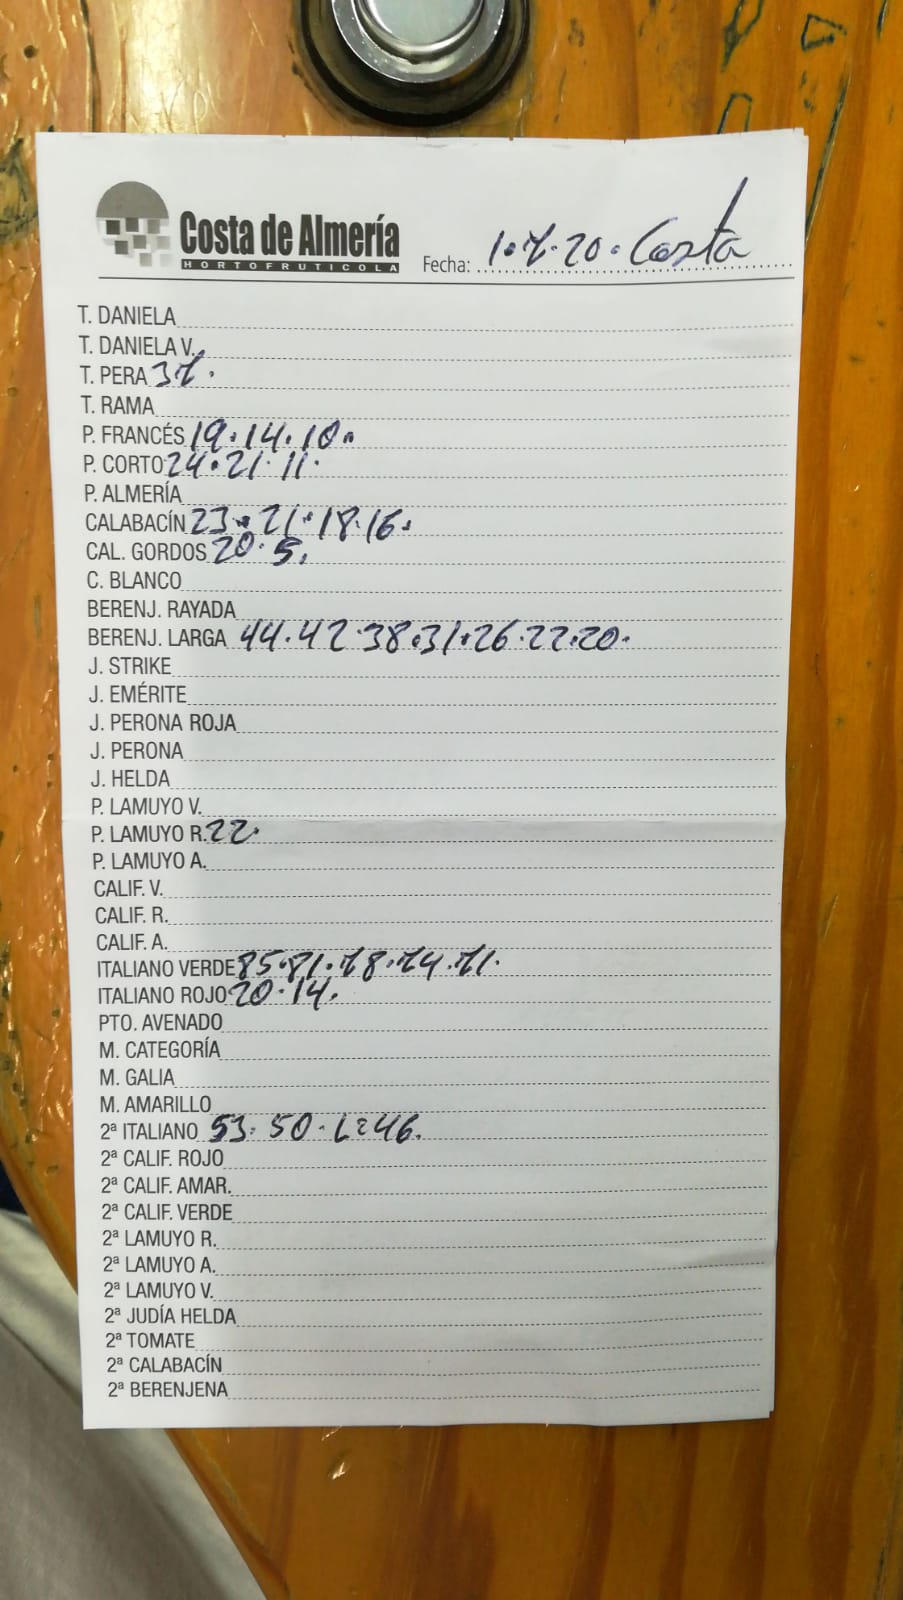 Costa de Almería
HORTOFRUTICOLA
Fecha: 1.7.20. Costa
T. DANIELA
T. DANIELA V.
T. PERA 37.
T. RAMA
P. FRANCÉS 19.14.10.
P. CORTO 24.21.11.
P. ALMERÍA
CALABACÍN 23.21.18.16.
CAL. GORDOS 20.5.
C. BLANCO
BERENJ. RAYADA
BERENJ. LARGA 44.42.38.31.26.22.20.
J. STRIKE
J. EMÉRITE
J. PERONA ROJA
J. PERONA
J. HELDA
P. LAMUYO V.
P. LAMUYO R. 22.
P. LAMUYO A.
CALIF. V.
CALIF. R.
CALIF. A.
ITALIANO VERDE 85.81.78.74.71.
ITALIANO ROJO 20.14.
PTO. AVENADO
M. CATEGORÍA
M. GALIA
M. AMARILLO
2ª ITALIANO 53.50. 46.
2ª CALIF. ROJO
2ª CALIF. AMAR.
2ª CALIF. VERDE
2ª LAMUYO R.
2ª LAMUYO A.
2ª LAMUYO V.
2ª JUDÍA HELDA
2ª TOMATE
2ª CALABACÍN
2ª BERENJENA